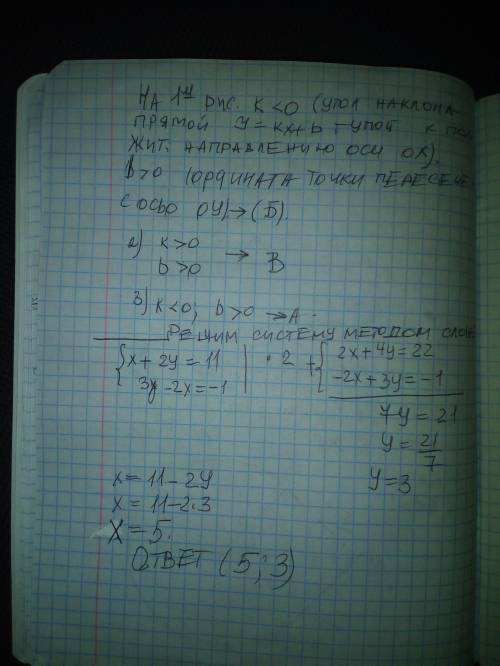 НА 1й РИС. К < 0 (УГОЛ НАКЛОНА
ПРЯМОЙ У = КХ + b - ТУПОЙ К ПОЛО
ЖИТ. НАПРАВЛЕНИЮ ОСИ ОХ).
b > 0 (ОРДИНАТА ТОЧКИ ПЕРЕСЕЧЕ
С ОСЬЮ ОУ) → (Б).
2) к > 0
b > 0 → В
3) к < 0; b > 0 → А.
РЕШИМ СИСТЕМУ МЕТОДОМ СЛОЖ
{ x + 2y = 11 | · 2 + { 2x + 4y = 22
3y - 2x = -1 | -2x + 3y = -1
7y = 21
y = 21/7
y = 3
x = 11 - 2y
x = 11 - 2·3
X = 5.
ОТВЕТ (5; 3)